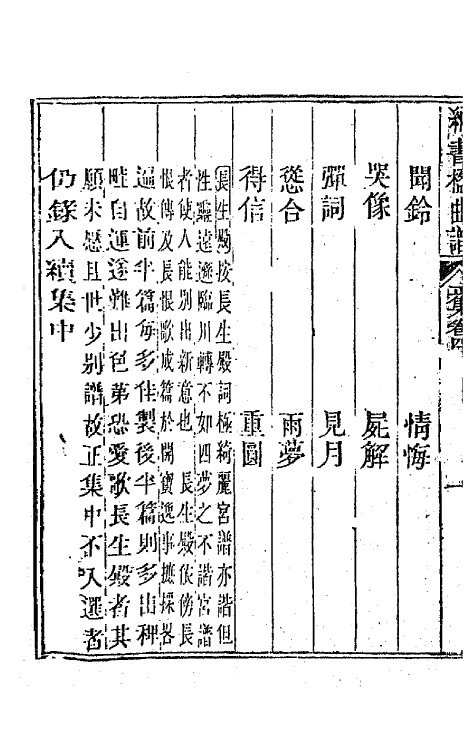 納書楹曲譜 續集卷
聞鈴　情悔
哭像　屍解
彈詞　見月
慫合　雨夢
得信　重圓
長生殿　按長生殿詞極綺麗宮譜亦諧但
性靈遠遜臨川轉不如四夢之不諧宮譜
者使人能別出新意也　長生殿依傍長
恨傳及長恨歌成篇於開寶遺事摭採畧
遍故前半篇每多佳製後半篇則多出稗
畦自運遂難出色第恐愛歌長生殿者其
願未懸且世少別譜故正集中不入選者
仍錄入續集中